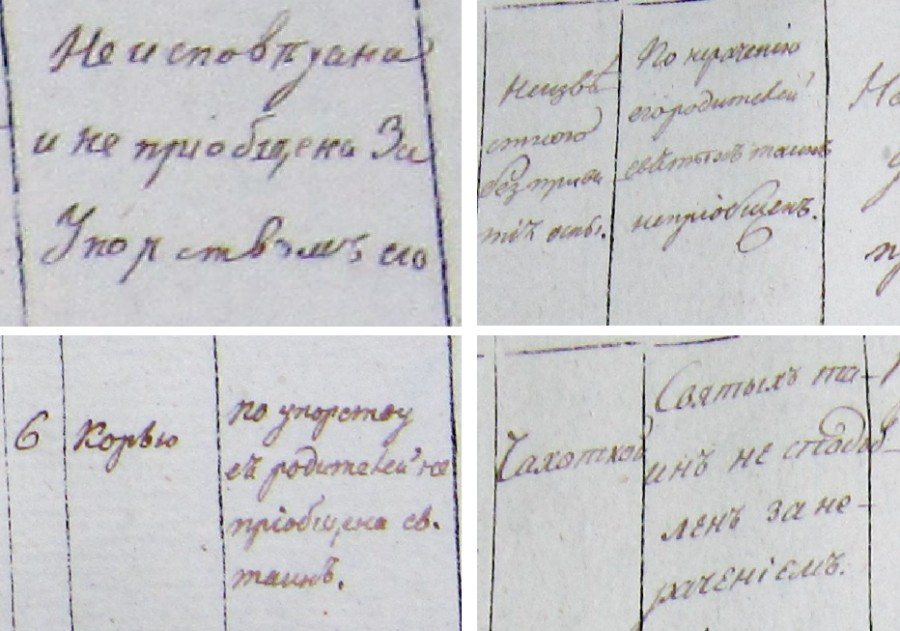 Неисповѣдана
и не прiобщена За
Упорствомъ его
Неизвѣ
стного
без приви
тiя оспы.
По нераченiю
его родителей
святыхъ таинъ
непрiобщенъ.
6
Корью
по упорству
еѣ родителей не
прiобщена св.
таинъ.
Чахоткой
Святыхъ та-
инъ не сподоб-
ленъ за не-
раченiемъ.